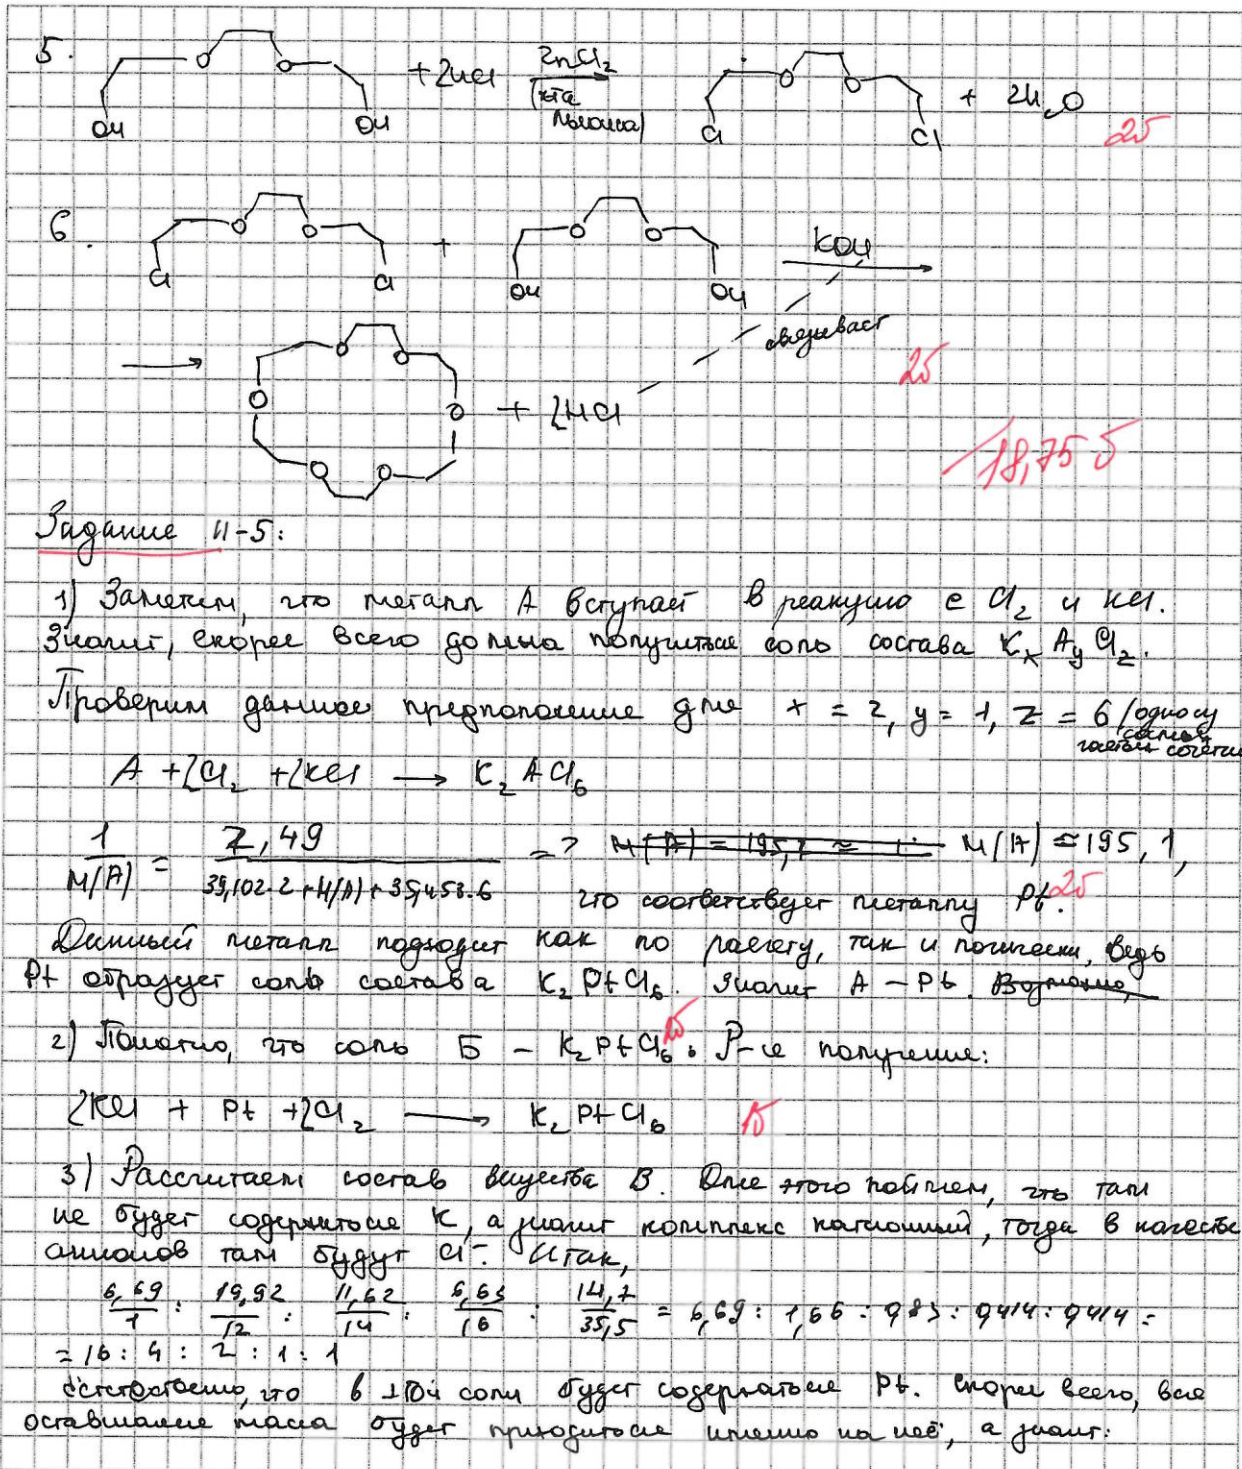 5. O O OH OH + 2HCl ZnCl₂ → O O Cl Cl + 2H₂O 2б
6. O O Cl Cl + O O OH OH KOH →
связывает
→ O O O O O O + 2HCl 2б
18,75 б
Задание 11-5:
1) Заметим, что металл A вступает в реакцию с Cl₂ и KCl.
Значит, скорее всего должна получиться соль состава KₓAᵧCl_z.
Проверим данное предположение для x = 2, y = 1, z = 6
A + 2Cl₂ + 2KCl → K₂ACl₆
1/M(A) = 2,49/(39,102·2 + M(A) + 35,453·6) => M(A) ≈ 195,1,
что соответствует металлу Pt. 2б
Данный металл подходит как по расчету, так и логически, ведь
Pt образует соль состава K₂PtCl₆. Значит A – Pt.
2) Понятно, что соль Б – K₂PtCl₆. 1б Р-ие получения:
2KCl + Pt + 2Cl₂ → K₂PtCl₆ 1б
3) Рассчитаем состав вещества В. Для этого поймем, что там
не будет содержаться K, а значит комплекс катионный, тогда в качестве
анионов там будут Cl⁻. Итак,
6,69/1 : 19,92/12 : 11,62/14 : 6,63/16 : 14,7/35,5 = 6,69 : 1,66 : 0,83 : 0,414 : 0,414 =
= 16 : 4 : 2 : 1 : 1
Естественно, что в этой соли будет содержаться Pt. Скорее всего, вся
оставшаяся масса будет приходиться именно на неё, а значит: